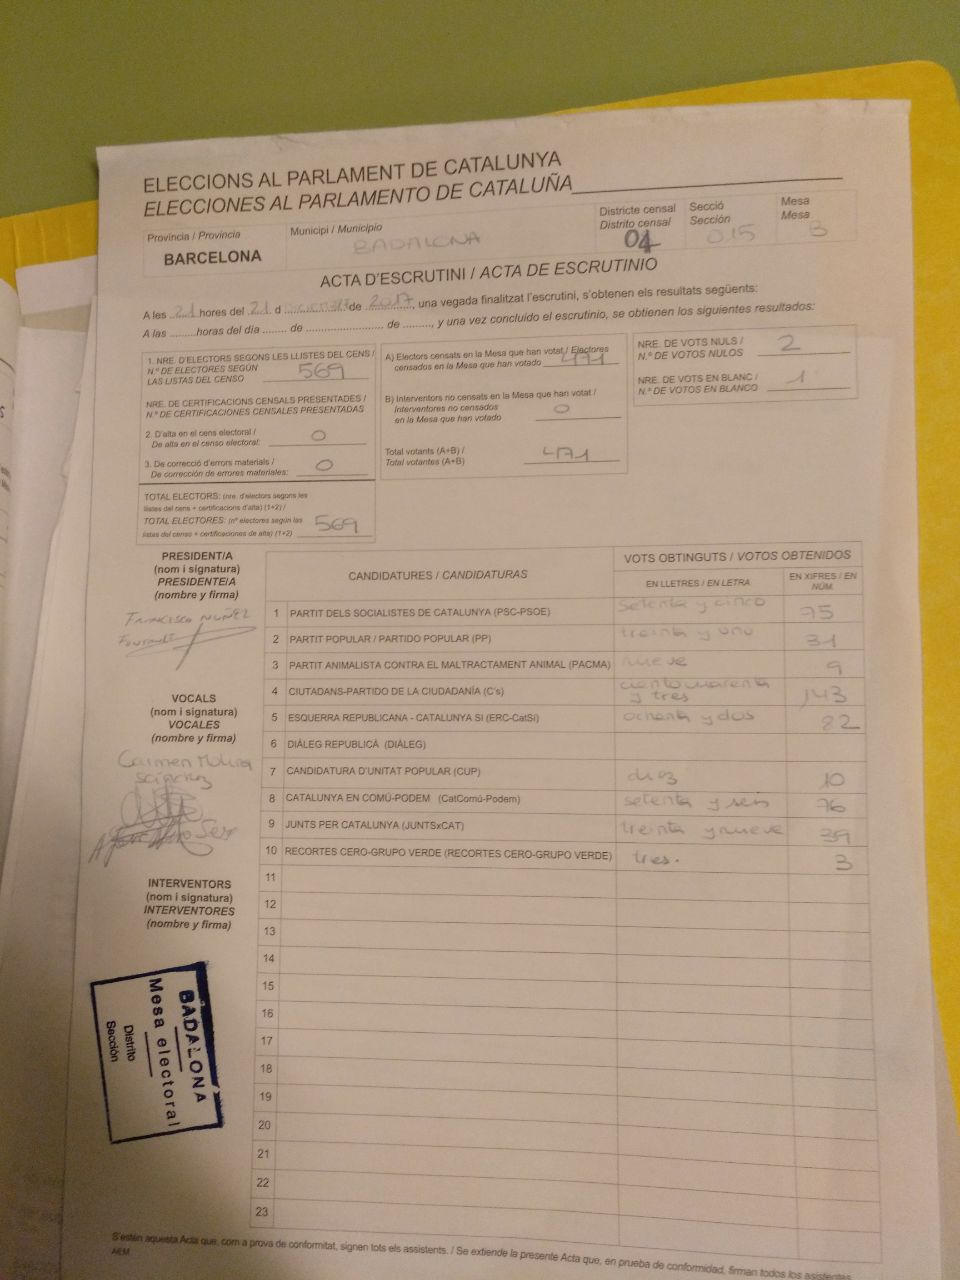 ELECCIONS AL PARLAMENT DE CATALUNYA
ELECCIONES AL PARLAMENTO DE CATALUÑA
Provincia / Provincia
BARCELONA
Municipi / Municipio
BADALONA
Districte censal
Distrito censal
04
Secció
Sección
015
Mesa
Mesa
B
ACTA D'ESCRUTINI / ACTA DE ESCRUTINIO
A les 21 hores del 21 d de 2017, una vegada finalitzat l'escrutini, s'obtenen els resultats següents:
A las ........ horas del día ........ de ........................ de ........, y una vez concluido el escrutinio, se obtienen los siguientes resultados:
1. NRE. D'ELECTORS SEGONS LES LLISTES DEL CENS /
N.º DE ELECTORES SEGÚN
LAS LISTAS DEL CENSO 569
NRE. DE CERTIFICACIONS CENSALS PRESENTADES /
N.º DE CERTIFICACIONES CENSALES PRESENTADAS
2. D'alta en el cens electoral /
De alta en el censo electoral: 0
3. De correcció d'errors materials /
De corrección de errores materiales: 0
TOTAL ELECTORS: (nre. d'electors segons les
llistes del cens + certificacions d'alta) (1+2) /
TOTAL ELECTORES: (nº electores según las
listas del censo + certificaciones de alta) (1+2) 569
A) Electors censats en la Mesa que han votat / Electores
censados en la Mesa que han votado 471
B) Interventors no censats en la Mesa que han votat /
Interventores no censados
en la Mesa que han votado 0
Total votants (A+B) /
Total votantes (A+B) 471
NRE. DE VOTS NULS /
N.º DE VOTOS NULOS 2
NRE. DE VOTS EN BLANC /
N.º DE VOTOS EN BLANCO 1
PRESIDENT/A
(nom i signatura)
PRESIDENTE/A
(nombre y firma)
FRANCISCO NUÑEZ
VOCALS
(nom i signatura)
VOCALES
(nombre y firma)
Carmen Molina
INTERVENTORS
(nom i signatura)
INTERVENTORES
(nombre y firma)
CANDIDATURES / CANDIDATURAS
VOTS OBTINGUTS / VOTOS OBTENIDOS
EN LLETRES / EN LETRA
EN XIFRES / EN NÚM.
1 PARTIT DELS SOCIALISTES DE CATALUNYA (PSC-PSOE) setenta y cinco 75
2 PARTIT POPULAR / PARTIDO POPULAR (PP) treinta y uno 31
3 PARTIT ANIMALISTA CONTRA EL MALTRACTAMENT ANIMAL (PACMA) nueve 9
4 CIUTADANS-PARTIDO DE LA CIUDADANÍA (C's) ciento cuarenta y tres 143
5 ESQUERRA REPUBLICANA - CATALUNYA SI (ERC-CatSí) ochenta y dos 82
6 DIÁLEG REPUBLICÀ (DIÀLEG)
7 CANDIDATURA D'UNITAT POPULAR (CUP) diez 10
8 CATALUNYA EN COMÚ-PODEM (CatComú-Podem) setenta y seis 76
9 JUNTS PER CATALUNYA (JUNTSxCAT) treinta y nueve 39
10 RECORTES CERO-GRUPO VERDE (RECORTES CERO-GRUPO VERDE) tres. 3
11
12
13
14
15
16
17
18
19
20
21
22
23
BADALONA
Mesa electoral
Distrito
Sección
S'estén aquesta Acta que, com a prova de conformitat, signen tots els assistents. / Se extiende la presente Acta que, en prueba de conformidad, firman todos los asistentes
AEM